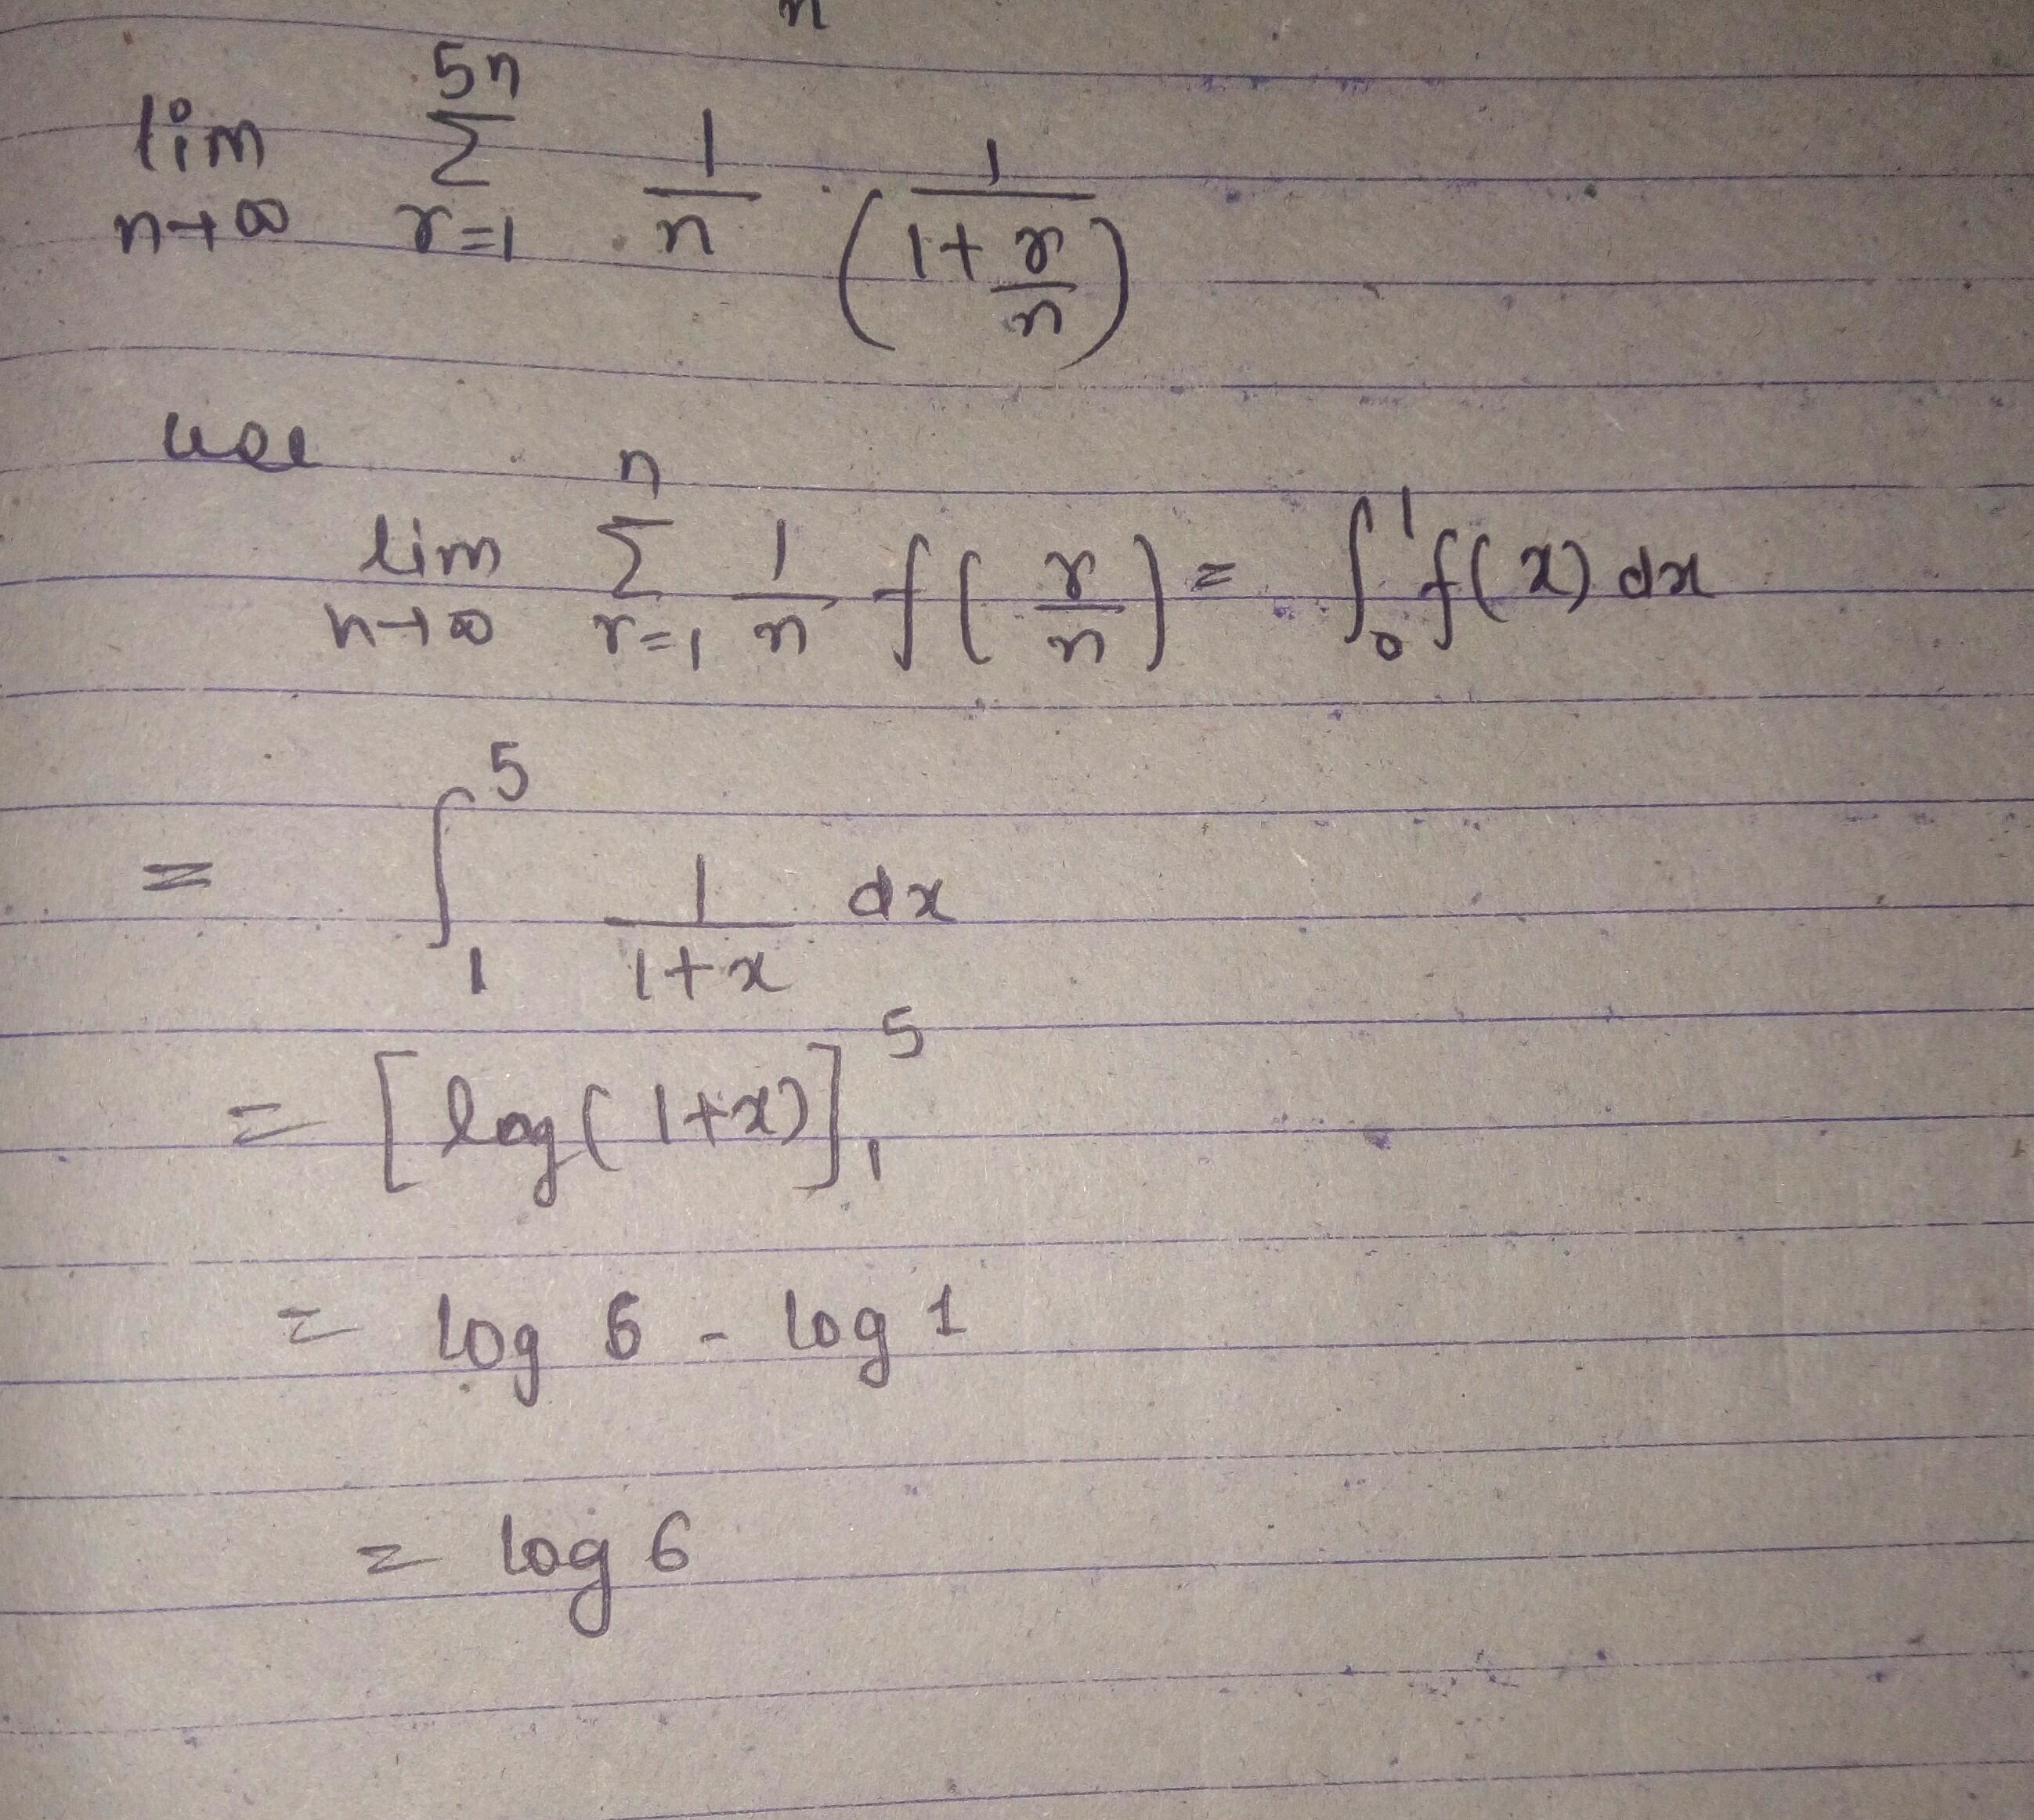 n
lim n→∞ 5n Σ r=1 1/n · 1/(1+r/n)
use
lim n→∞ n Σ r=1 1/n f(r/n) = ∫₀¹ f(x) dx
= ∫₁⁵ 1/1+x dx
= [log(1+x)]₁⁵
= log 6 - log 1
= log 6